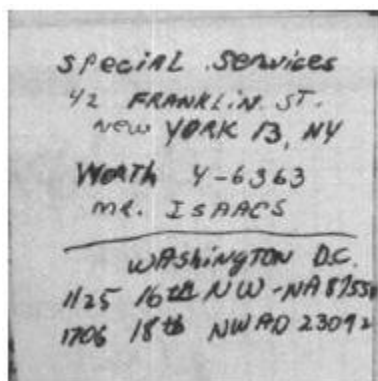 special services
42 FRANKLIN ST.
New YORK 13, NY
Worth 4-6363
MR. ISAACS
WAShingTON D.C.
1125 16th NW - NA 87550
1706 18th NW AD 23092